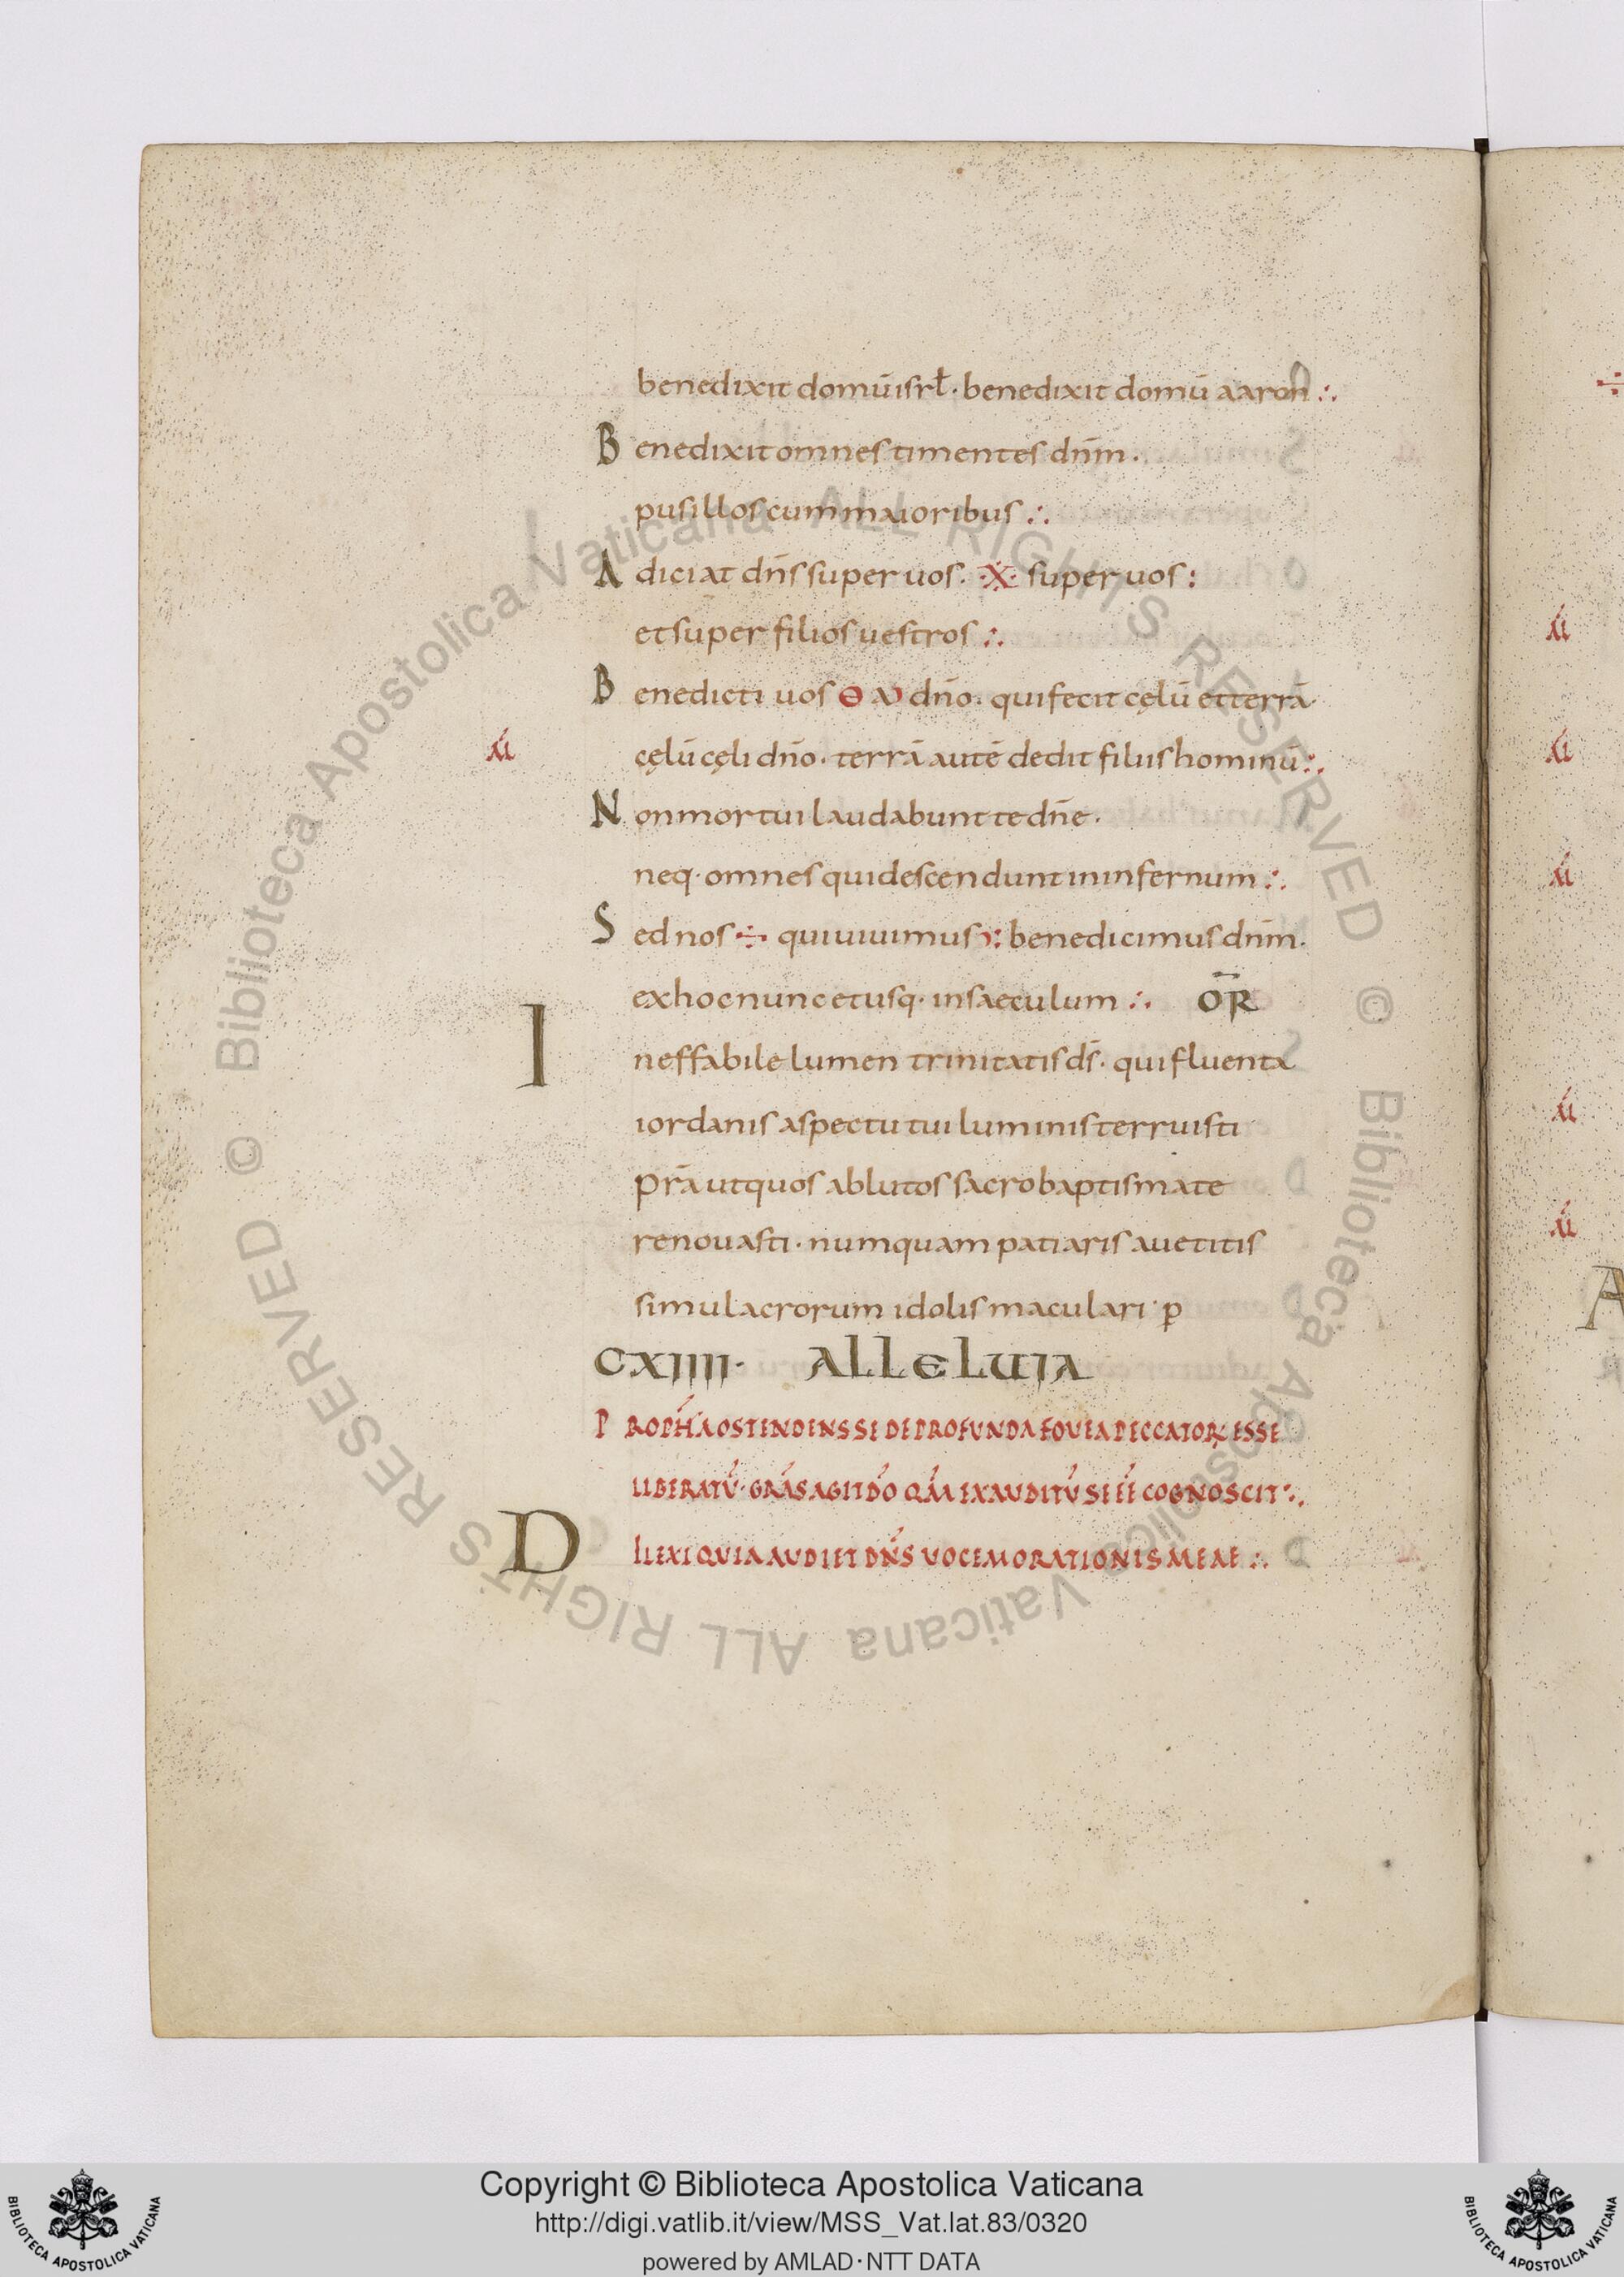 benedixit domū isrƚ · benedixit domū aaron ∴
Benedixit omnes timentes dn̄m ·
pusillos cum maioribus ∴
Adiciat dn̄s super uos · ·X· super uos :
et super filios uestros ∴
Benedicti uos Θ dn̄o · qui fecit cęlū et terrā
cęlū cęli dn̄o · terrā autē dedit filiis hominū ∴
Non mortui laudabunt te dn̄e ·
neq· omnes qui descendunt in infernum ∴
Sed nos ÷ qui uiuimus : benedicimus dn̄m ·
ex hoc nunc et usq· in saeculum ∴ OR̄
Ineffabile lumen trinitatis ds̄ · qui fluenta
iordanis aspectu tui luminis terruisti
prā ut quos ablutos sacro baptismate
renouasti · numquam patiaris a uetitis
simulacrorum idolis maculari · p̄
CXIIII · ALLELUIA
PROPH́A OSTENDENS SE DE PROFUNDA FOUEA PECCATOR̨ ESSE
LIBERATŪ · GRĀS AGIT DŌ QM̄ EXAUDITŪ SE EĒ COGNOSCIT ∴
DILEXI QUIA AUDIET DN̄S UOCEM ORATIONIS MEAE ∴
Copyright © Biblioteca Apostolica Vaticana
http://digi.vatlib.it/view/MSS_Vat.lat.83/0320
powered by AMLAD·NTT DATA
BIBLIOTECA APOSTOLICA VATICANA
BIBLIOTECA APOSTOLICA VATICANA
© Biblioteca Apostolica Vaticana ALL RIGHTS RESERVED
© Biblioteca Apostolica Vaticana ALL RIGHTS RESERVED